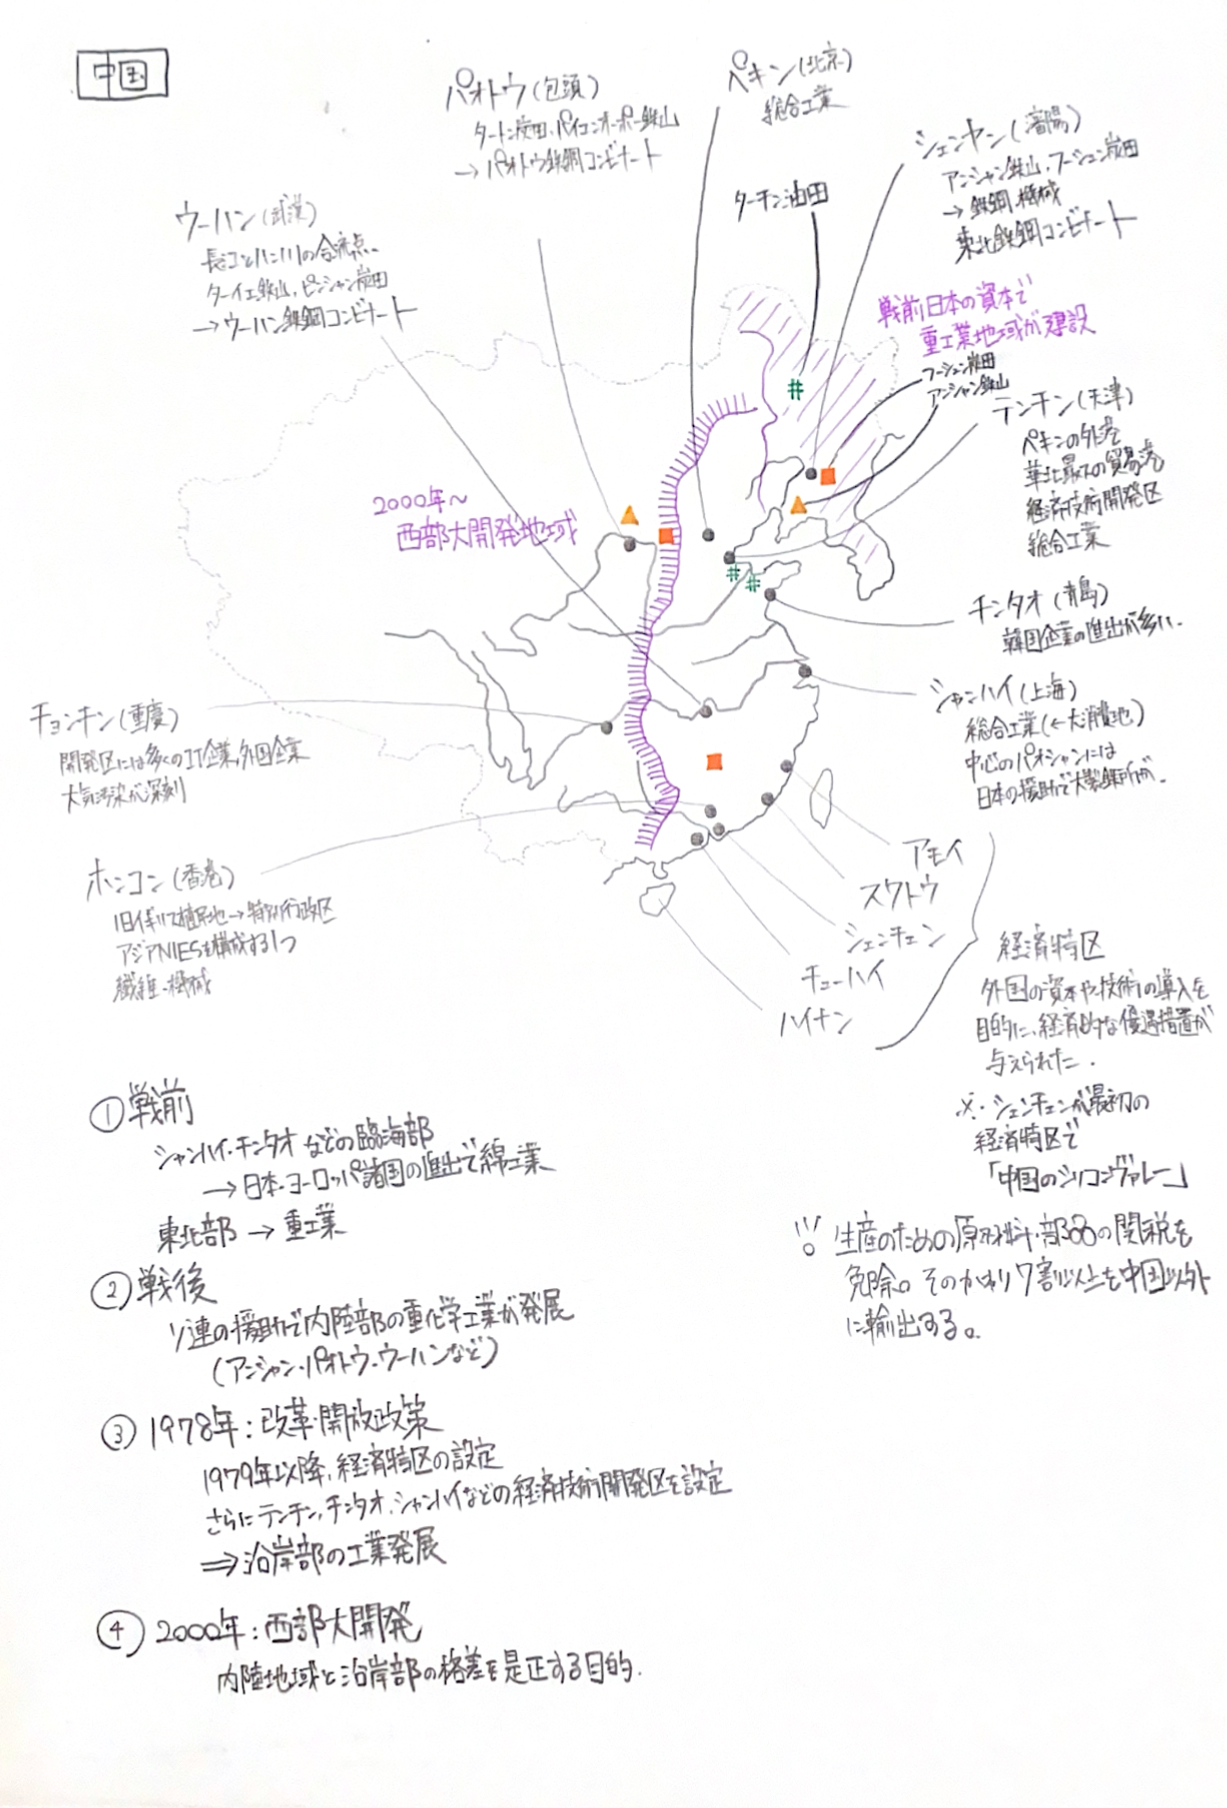 中国
パオトウ(包頭)
タートン炭田、パイユンオーボー鉄山
→パオトウ鉄鋼コンビナート
ペキン(北京)
総合工業
シェンヤン(瀋陽)
アンシャン鉄山、フーシュン炭田
→鉄鋼、機械
東北鉄鋼コンビナート
ターチン油田
ウーハン(武漢)
長江とハン川の合流点、
ターイエ鉄山、ピンシャン炭田
→ウーハン鉄鋼コンビナート
戦前日本の資本で
重工業地域が建設
フーシュン炭田
アンシャン鉄山
テンチン(天津)
ペキンの外港
華北最大の貿易港
経済技術開発区
総合工業
2000年~
西部大開発地域
チンタオ(青島)
韓国企業の進出が多い.
シャンハイ(上海)
総合工業(←大消費地)
中心のパオシャンには
日本の援助で大製鉄所が.
チョンチン(重慶)
開発区には多くのIT企業,外国企業
大気汚染が深刻
ホンコン(香港)
旧イギリス植民地→特別行政区
アジアNIESを構成する1つ
繊維・機械
アモイ
スワトウ
シェンチェン
チューハイ
ハイナン
経済特区
外国の資本や技術の導入を
目的に、経済的な優遇措置が
与えられた.
※・シェンチェンが最初の
経済特区で
「中国のシリコンヴァレー」
生産のための原材料・部品の関税を
免除。そのかわり7割以上を中国以外
に輸出する。
①戦前
シャンハイ・チンタオなどの臨海部
→日本・ヨーロッパ諸国の進出で綿工業
東北部→重工業
②戦後
ソ連の援助で内陸部の重化学工業が発展
(アンシャン・パオトウ・ウーハンなど)
③1978年:改革・開放政策
1979年以降,経済特区の設定
さらにテンチン,チンタオ,シャンハイなどの経済技術開発区を設定
⇒沿岸部の工業発展
④2000年:西部大開発
内陸地域と沿岸部の格差を是正する目的.